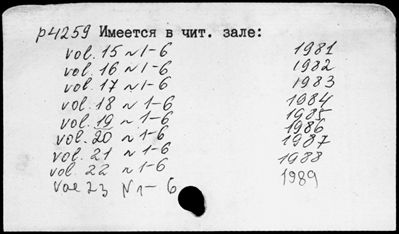 р4259 Имеется в чит. зале:
vol. 15 N 1-6 1981
vol. 16 N 1-6 1982
vol. 17 N 1-6 1983
vol. 18 N 1-6 1984
vol. 19 N 1-6 1985
vol. 20 N 1-6 1986
vol. 21 N 1-6 1987
vol. 22 N 1-6 1988
vol 23 N 1-6 1989